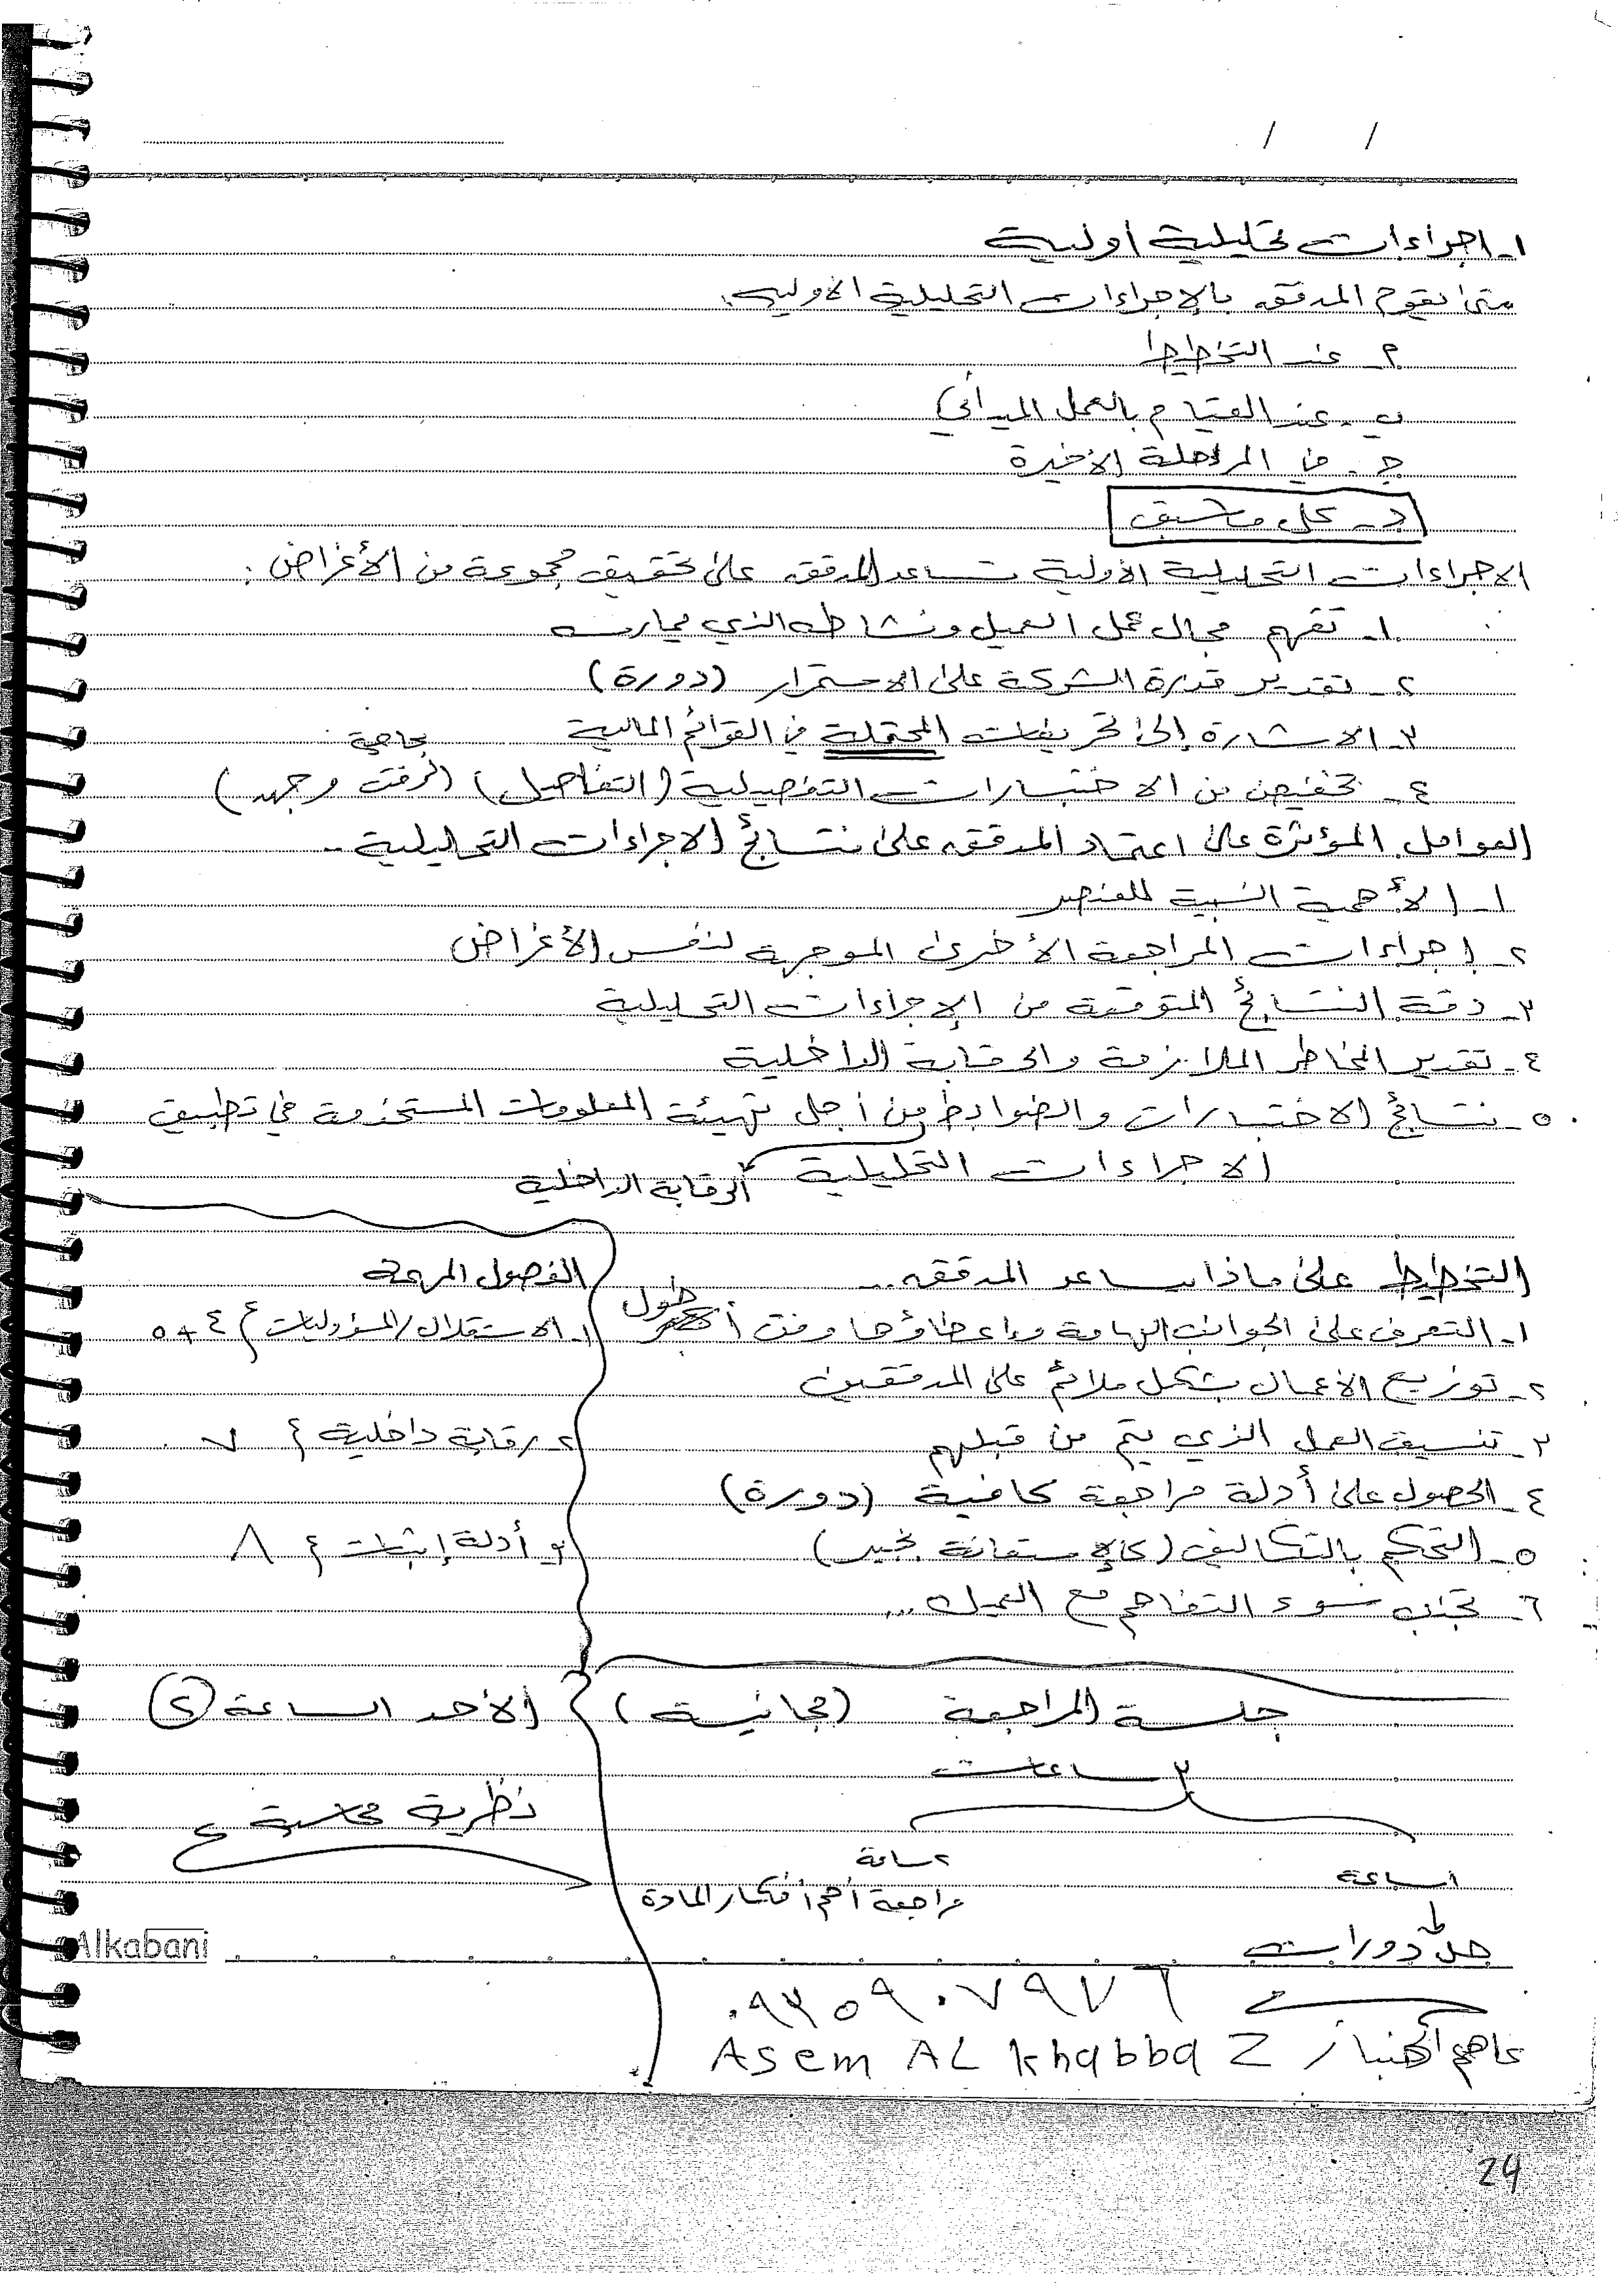 ١- اجراءات تحليلية أولية
متى يقوم المدقق بالإجراءات التحليلية الأولية
٢- عند التخطيط
ب- عند القيام بالعمل الميداني
ج- في المرحلة الأخيرة
د- كل ما سبق
الاجراءات التحليلية الأولية تساعد المدقق على تحقيق مجموعة من الأغراض:
١- تفهم مجال عمل العميل ونشاطه الذي يمارسه
٢- تقدير قدرة الشركة على الاستمرار (دورة)
٣- الاشارة إلى تحريفات المحتملة في القوائم المالية
بحاجة
٤- تخفيض من الاختبارات التفصيلية (التفاصيل) (لوقت وجهد)
العوامل المؤثرة على اعتماد المدقق على نتائج الاجراءات التحليلية -
١- الأهمية النسبية للعنصر
٢- إجراءات المراجعة الأخرى الموجهة لنفس الأغراض
٣- دقة النتائج المتوقعة من الإجراءات التحليلية
٤- تقدير المخاطر الملازمة والرقابة الداخلية
٥- نتائج الاختبارات والضوابط من أجل تهيئة المعلومات المستخدمة في تطبيق
الاجراءات التحليلية
الرقابة الداخلية
التخطيط على ماذا يساعد المدقق..
١- التعرف على الجوانب الهامة وإعطاؤها وقت أطول
٢- توزيع الأعمال بشكل ملائم على المدققين
٣- تنسيق العمل الذي يتم من قبلهم
٤- الحصول على أدلة مراجعة كافية (دورة)
٥- التحكم بالتكاليف (كالإستعانة بخبير)
٦- تجنب سوء التفاهم مع العميل ...
الفصول المهمة
١- الاستقلال/المسؤوليات ٤ + ٥
٢- رقابة داخلية ٧
و أدلة إثبات ٨
جلسة المراجعة (مجانية)
الأحد الساعة (٢)
٣ ساعات
نظرية محاسبة
١ ساعة
٢ ساعة
مراجعة أهم أفكار المادة
حل دورات
٠٩٣٥٩٠٧٩٧٦
عاصم الخباز Asem AL khabbaz
Alkabani
29